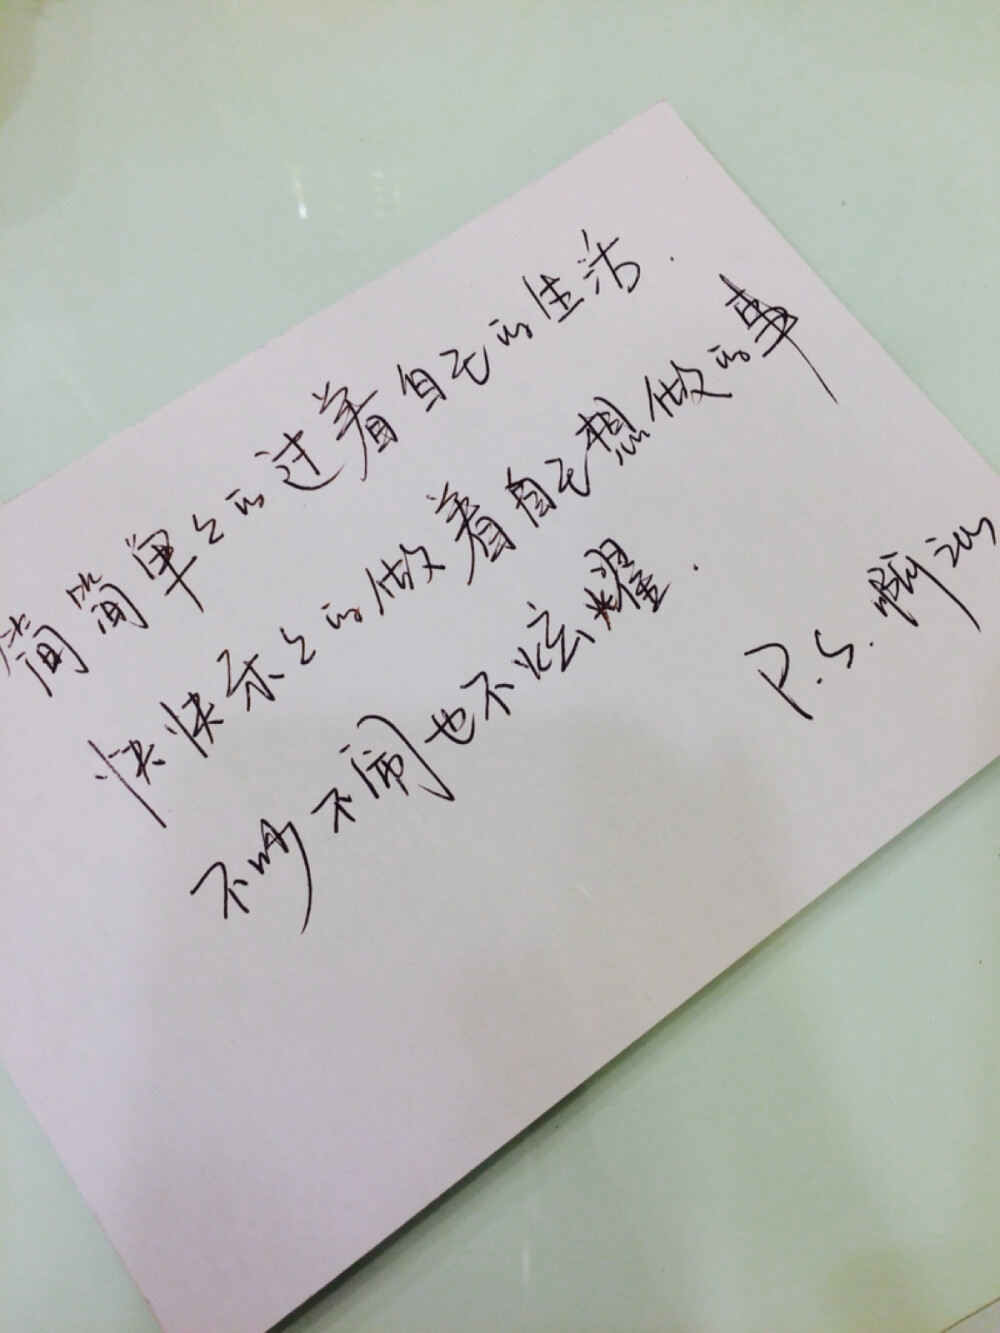 简简单单的过着自己的生活.
快快乐乐的做着自己想做的事
不吵不闹也不炫耀.
P.S.